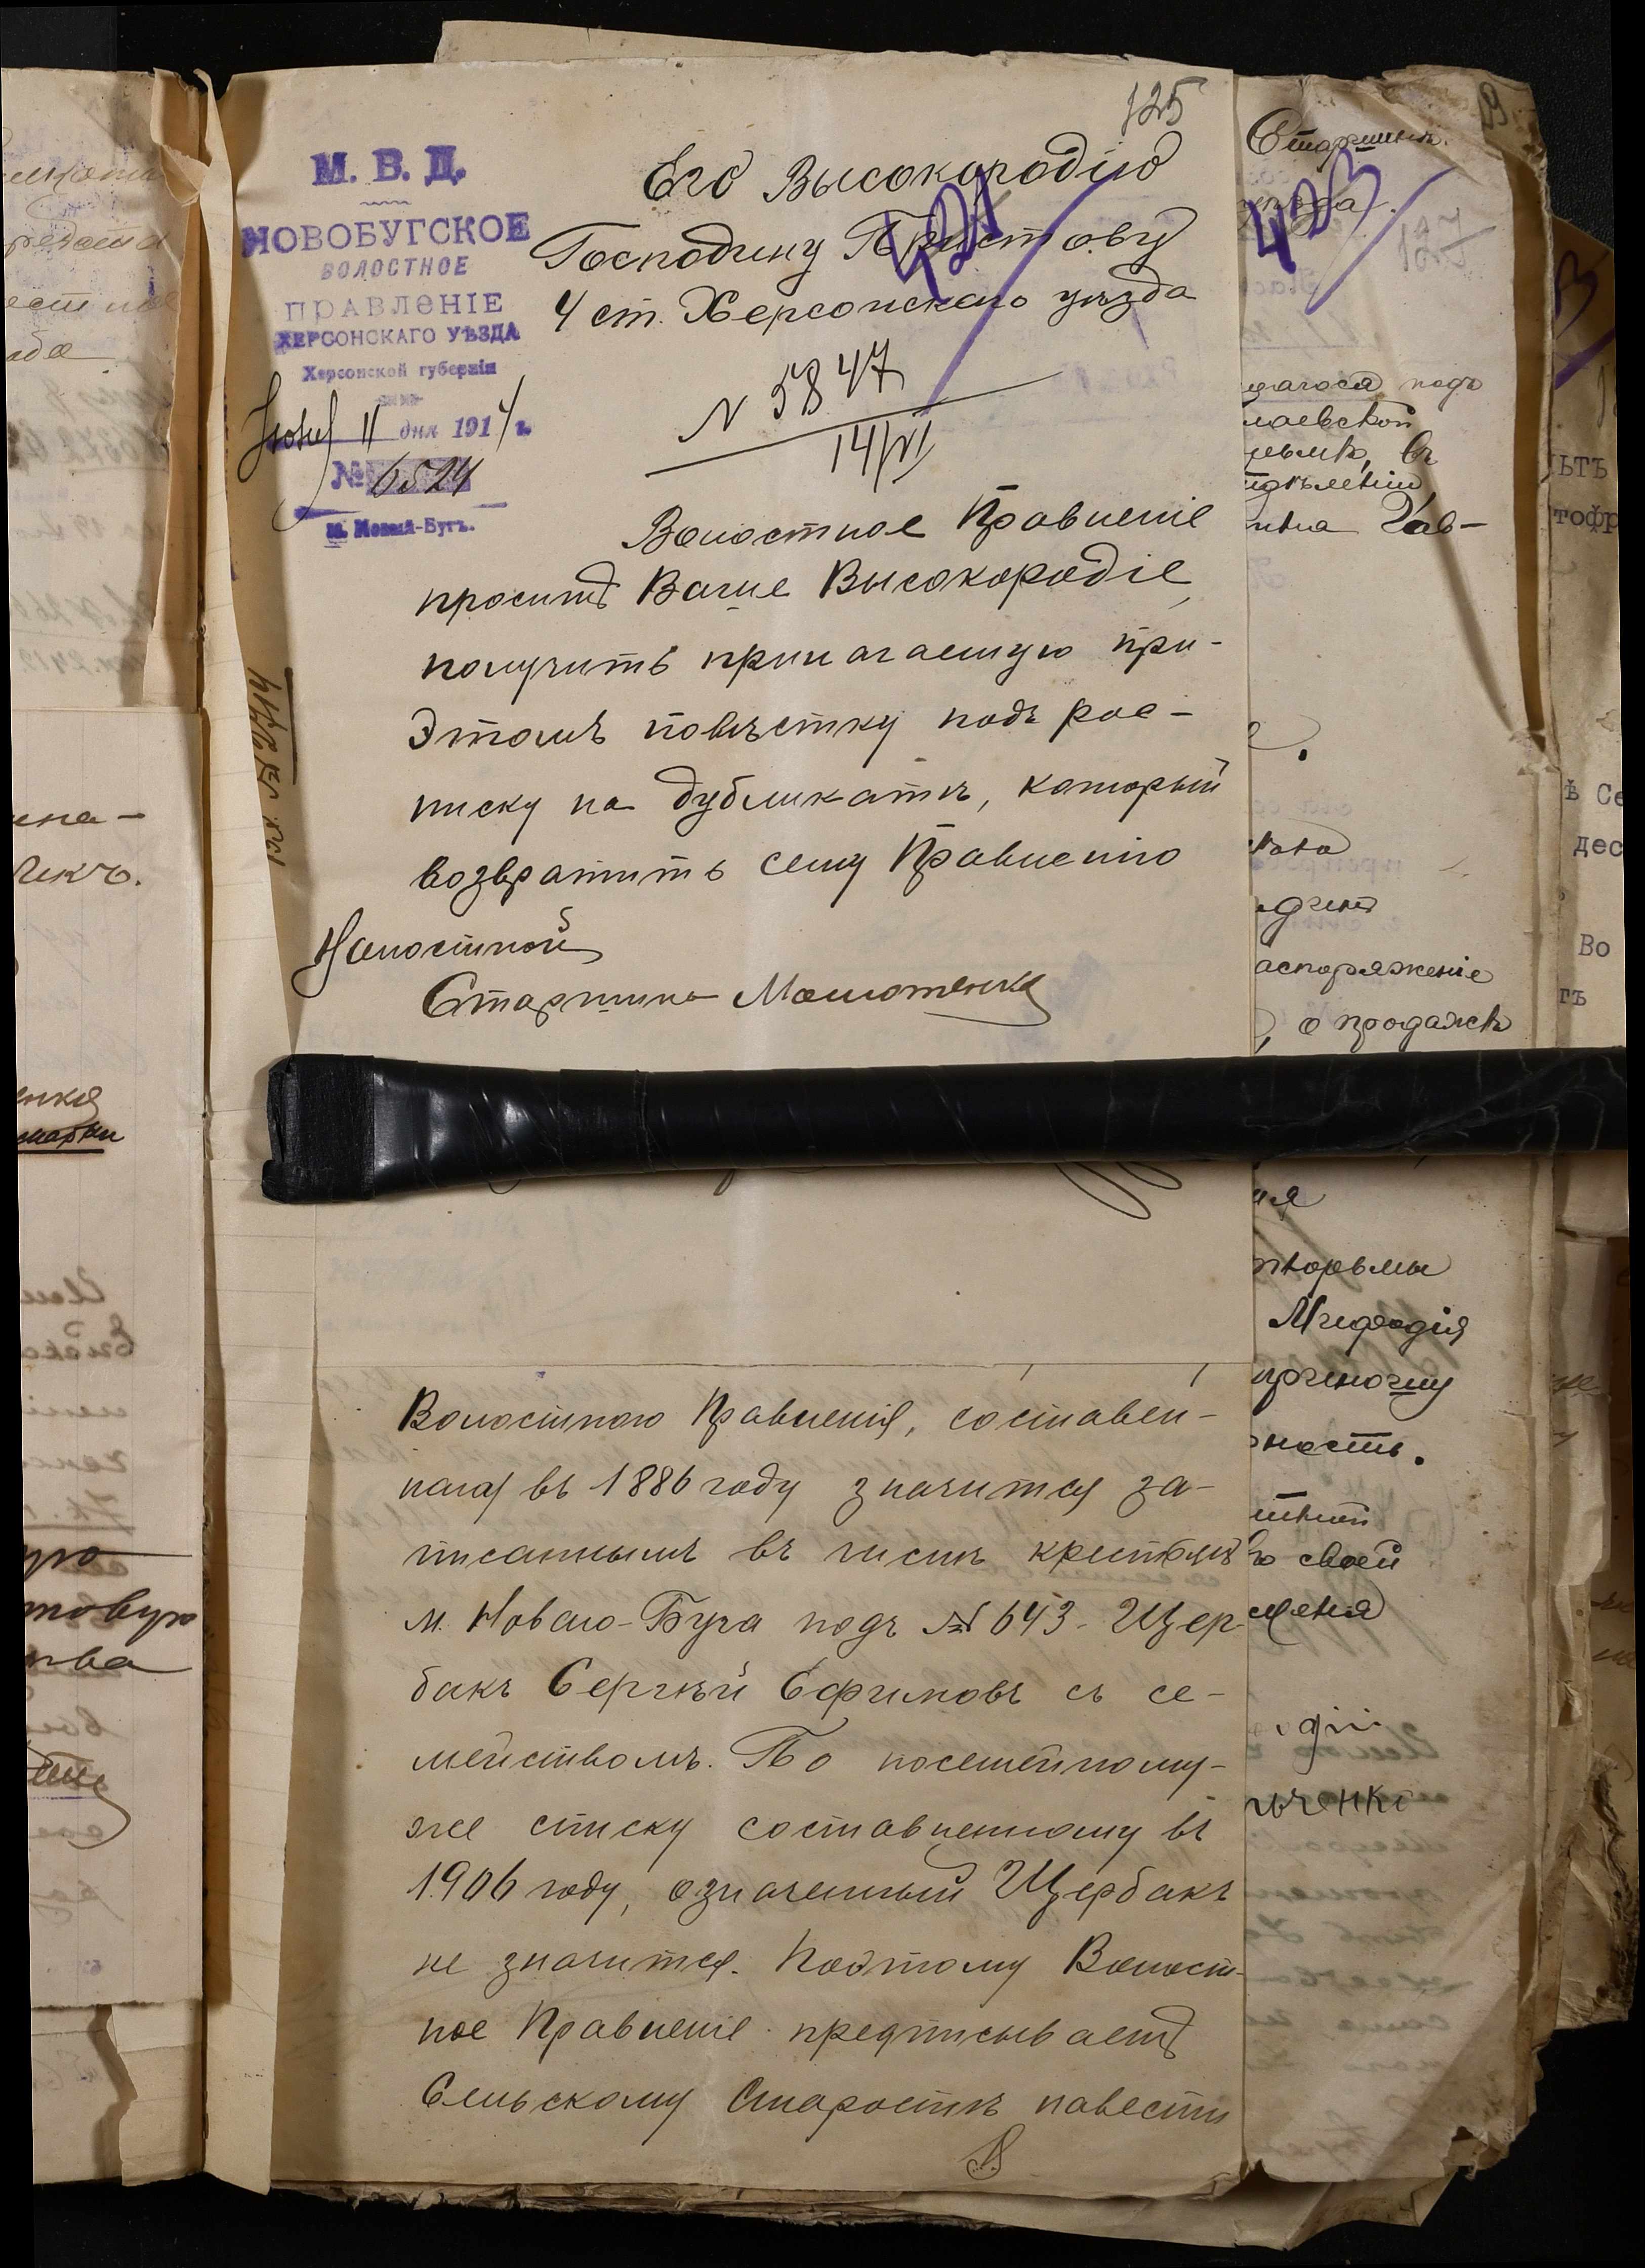 125
М. В. Д.
НОВОБУГСКОЕ
ВОЛОСТНОЕ
ПРАВЛЕНІЕ
ХЕРСОНСКАГО УѢЗДА
Херсонской губерніи
Іюня 11 дня 1914 г.
№ 6524
м. Новый-Бугъ.
Его Высокородію
Господину Приставу
4 ст. Херсонскаго уѣзда
421
N 5847
14/VI
Волостное Правленіе
проситъ Ваше Высокородіе,
получить прилагаемую при-
этомъ повѣстку подъ рос-
писку на дубликатѣ, который
возвратить сему Правленію
Волостной
Старшина
Волостного Правленія, составлен-
наго въ 1886 году значится за-
писаннымъ въ числѣ крестьянъ
м. Новаго-Буга подъ № 643 - Щер-
бакъ Сергѣй Ефимовъ съ се-
мействомъ. По посемейному-
же списку составленному въ
1906 году, означенный Щербакъ
не значится. Поэтому Волост-
ное Правленіе предписываетъ
Сельскому Старостѣ навести
Старшинѣ
уѣзда.
423
щагося подъ
лаевской
Гав-
аспоряженіе
, о продажѣ
ія
тюрьмы
Мифодія
ность.
ю своей